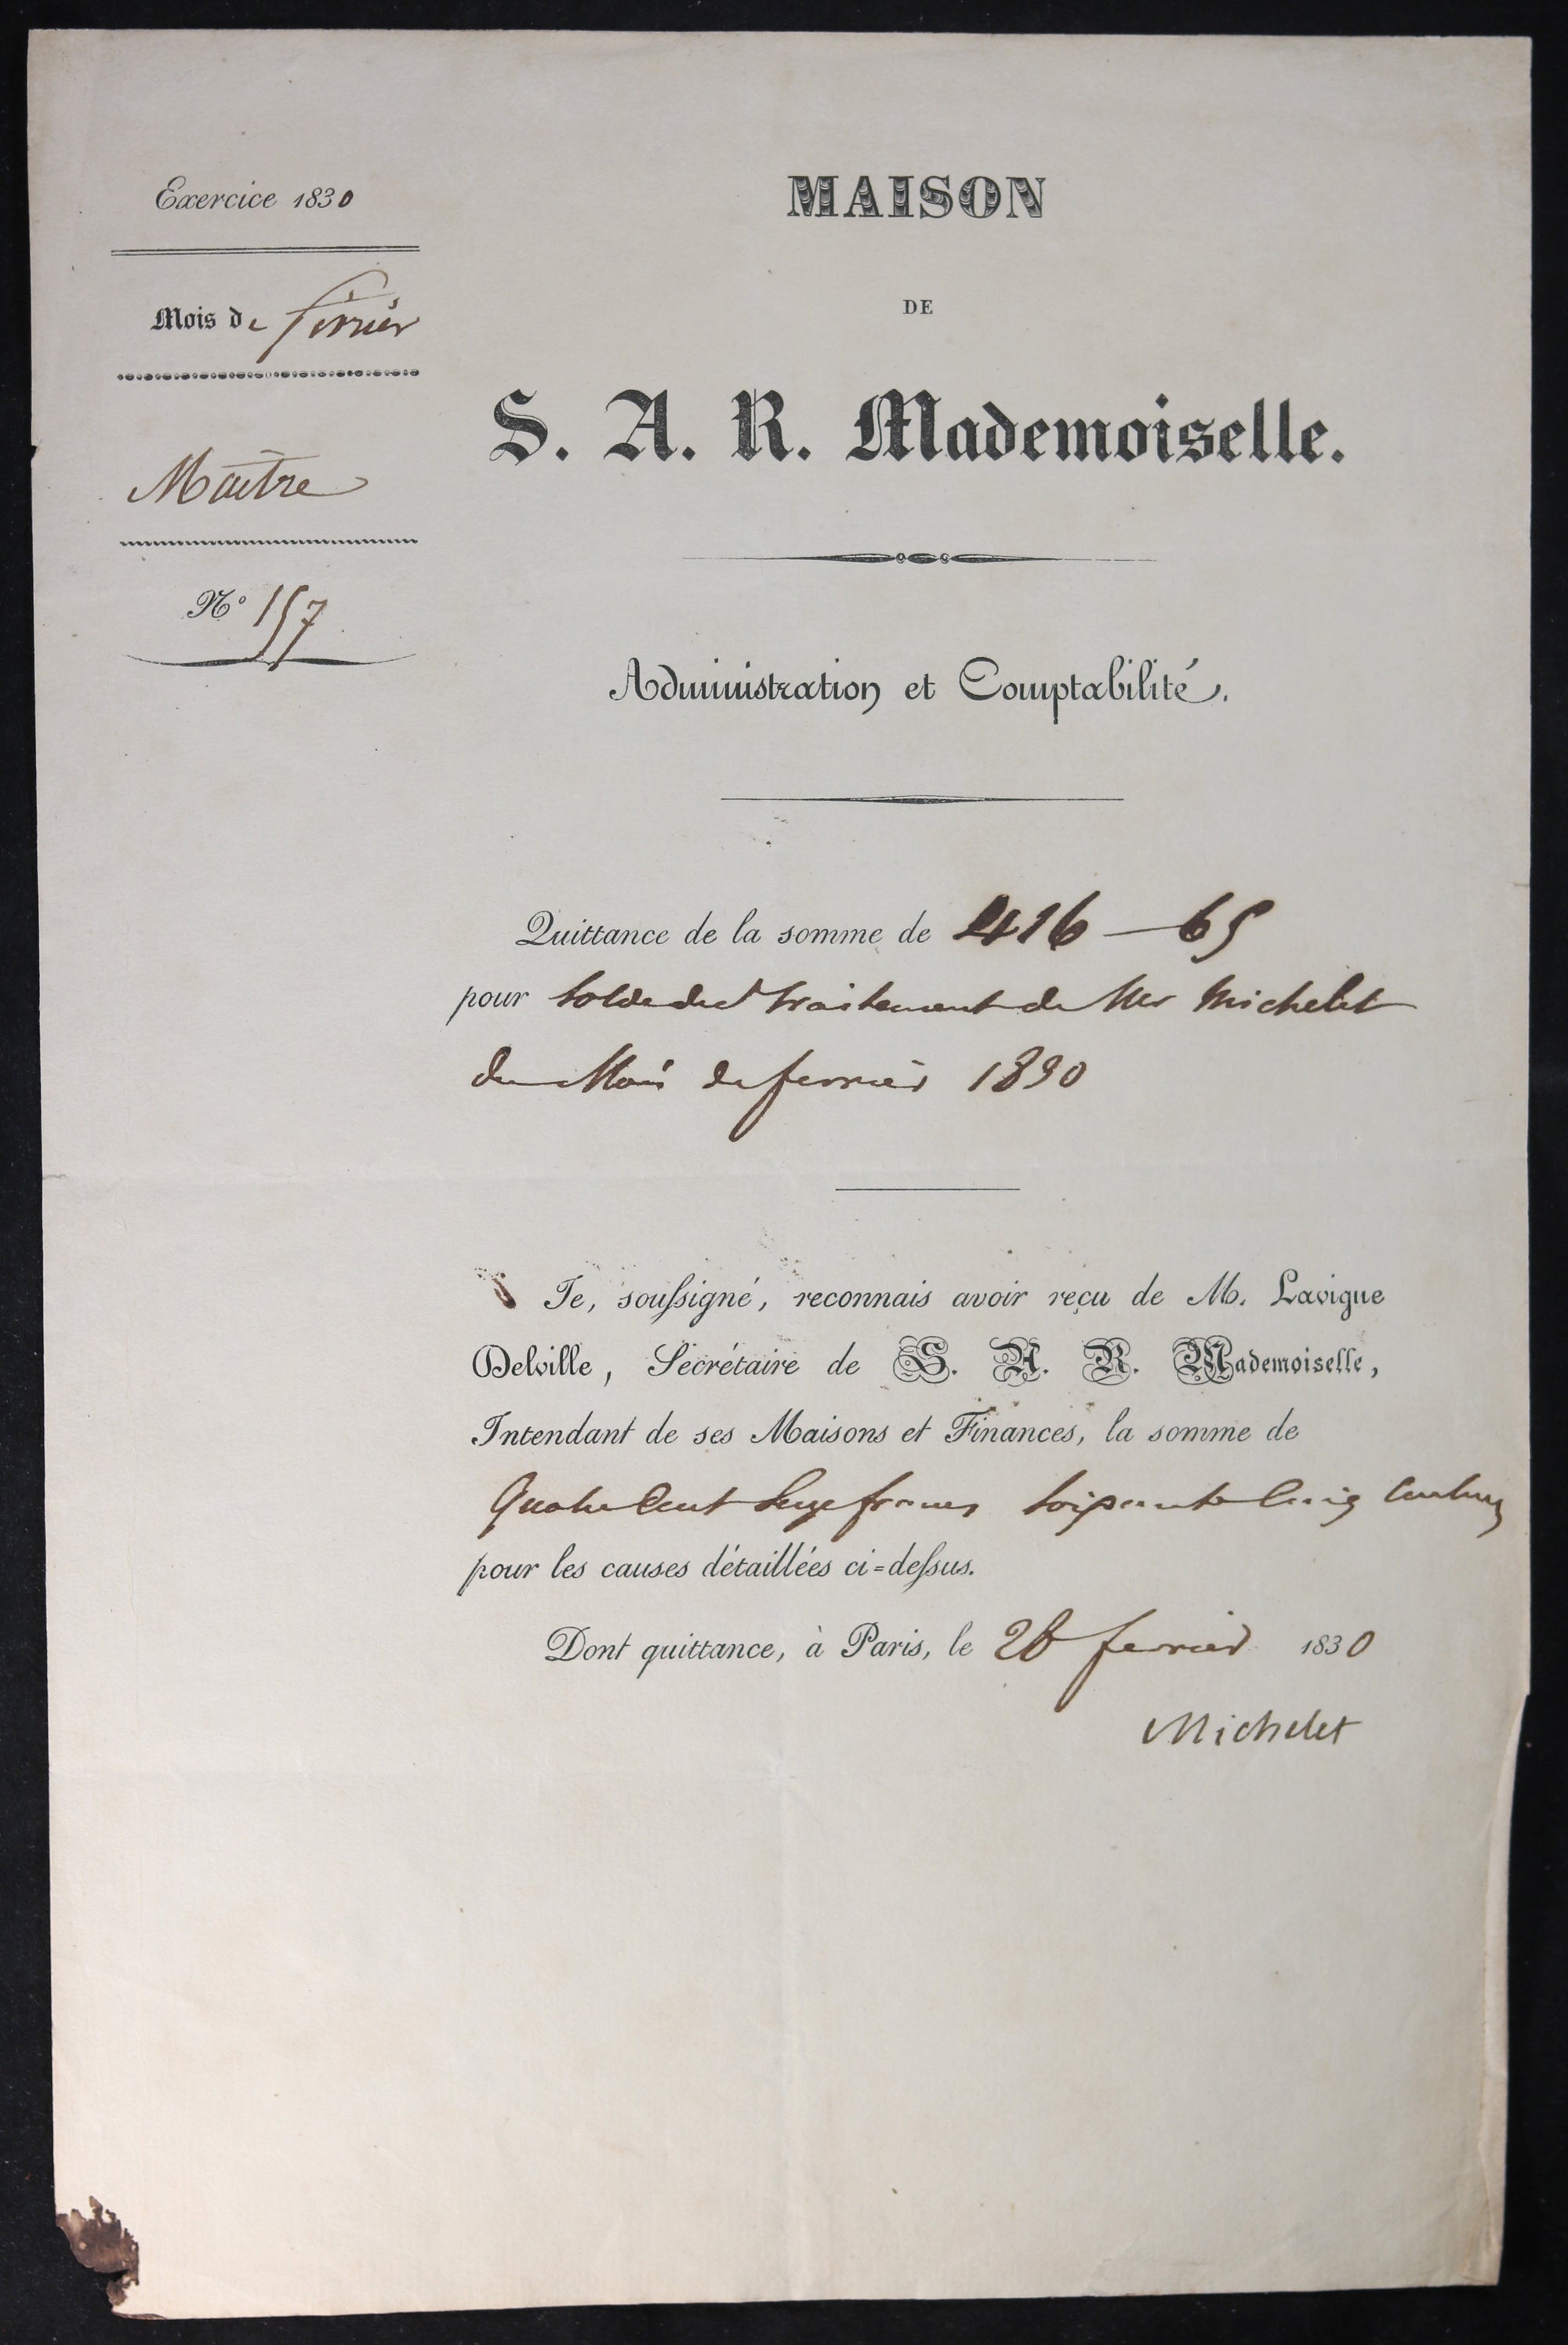 Exercice 1830
Mois de février
Maitre
N° 157
MAISON
DE
S. A. R. Mademoiselle.
Administration et Comptabilité.
Quittance de la somme de 416 — 65
pour solde du traitement de Mr Michelet
du Mois de fevrier 1830
Je, soussigné, reconnais avoir reçu de M. Lavigne
Delville, Secrétaire de S. A. R. Mademoiselle,
Intendant de ses Maisons et Finances, la somme de
Quatre Cent Seize francs soixante Cinq Centimes
pour les causes détaillées ci=dessus.
Dont quittance, à Paris, le 28 fevrier 1830
Michelet